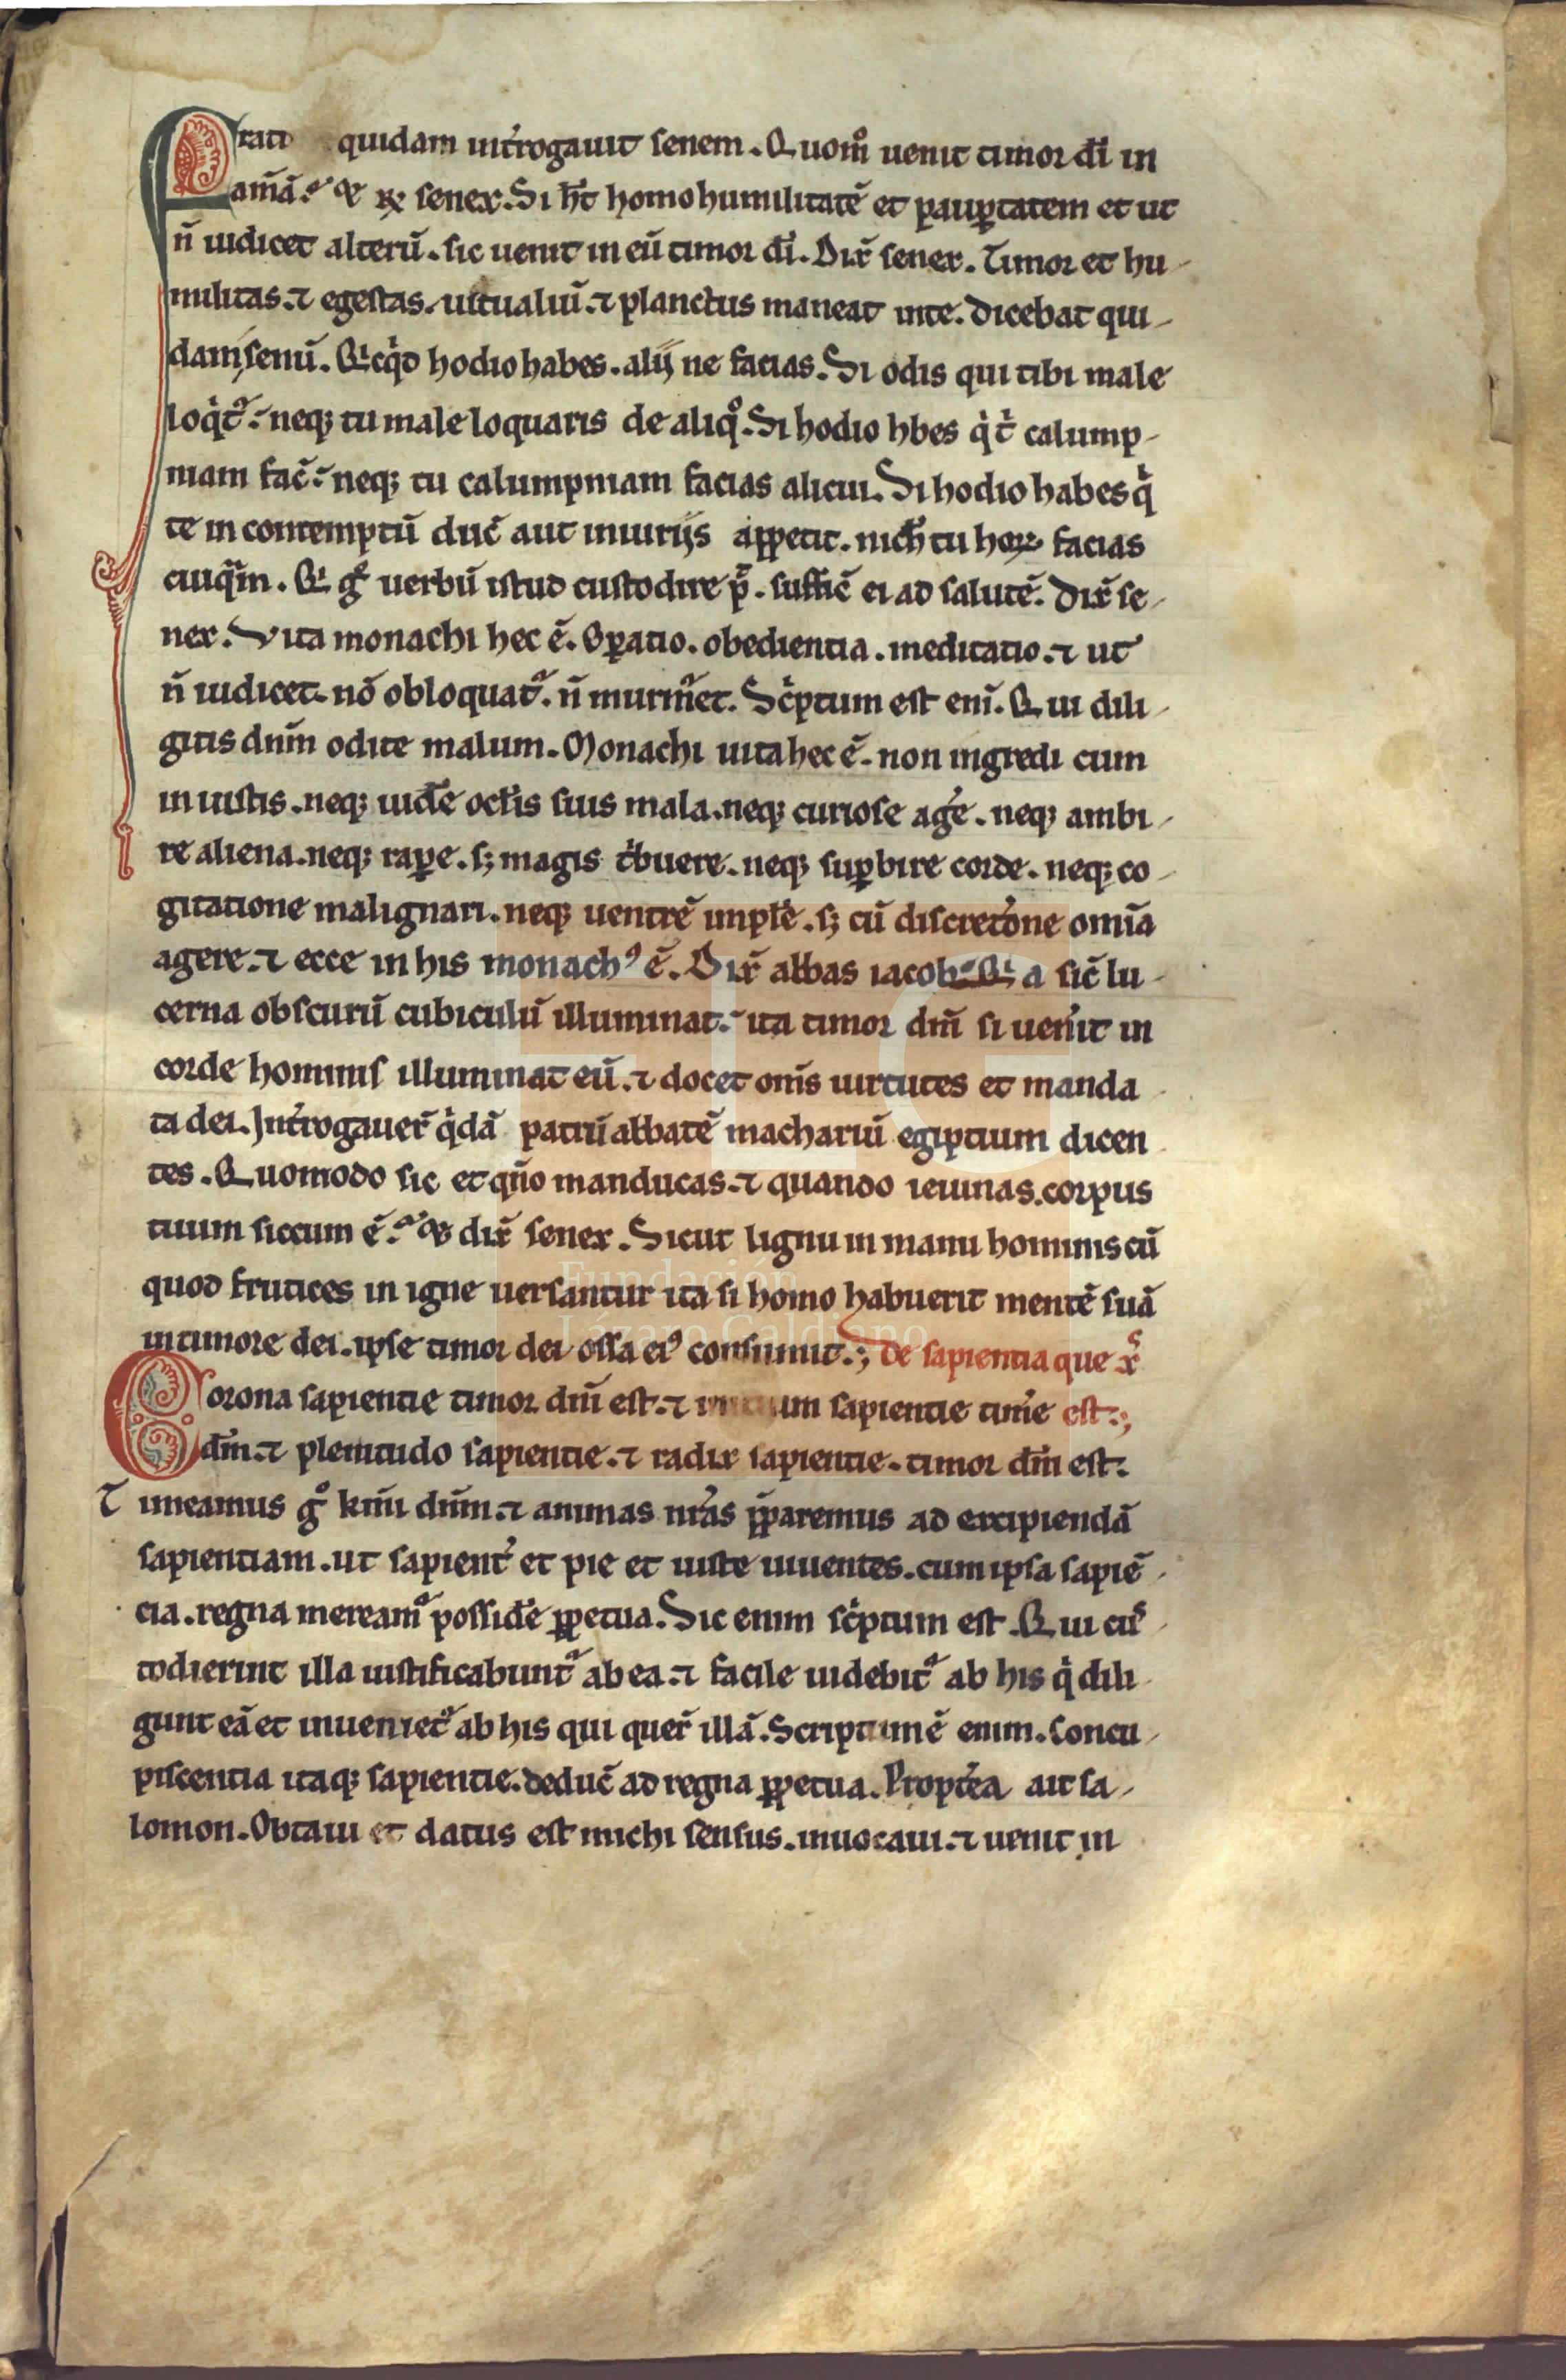 Frat quidam int̾rogauit senem. Quom̊ uenit timor dī in
am̄ā. Et R̸ senex. Si h̄t homo humilitatē et paup̱tatem et ut
n̄ iudicet alterū. sic uenit in eū timor dī. Dix̄ senex. Timor et hu-
militas. ⁊ egestas. uictualiū. ⁊ planctus maneat in te. Dicebat qui-
dam senū. Qicq̇d hodio habes. alij ne facias. Si odis qui tibi male
loq̇t᷑. neq; tu male loquaris de aliq̊. Si hodio hbes q̇ t̾ calump-
niam fac̄. neq; tu calumpniam facias alicui. Si hodio habes q̇
te in contemptū duc̄ aut iniurijs appetit. nich̄ tu hoꝝ facias
cuiq̄m. Qi g̊ uerbū istud custodire p̄. suffic̄ ei ad salutē. Dix̄ se-
nex. Vita monachi hec ē. Op̱atio. obedientia. meditatio. ⁊ ut
n̄ iudicet. nō obloquat᷑. n̄ murm̄et. Sc̓ptum est enī. Qui dili-
gitis dn̄m odite malum. Monachi uita hec ē. non ingredi cum
iniustis. neq; uid̄e oct̄is suis mala. neq; curiose ag̾e. neq; ambi-
re aliena. neq; rap̱e. s; magis t̓buere. neq; sup̱bire corde. neq; co-
gitatione malignari. neq; uentrē impl̄e. s; cū discret̓one om̄ia
agere. ⁊ ecce in his monachꝰ ē. Dix̄ abbas iacob. Qia sic̄ lu-
cerna obscurū cubiculū illuminat. ita timor dn̄i si uen̾it in
corde hominis illuminat eū. ⁊ docet om̄s uirtutes et manda
ta dei. Int̾rogauer̄ q̇dā patrū abbatē machariū egiptium dicen
tes. Quomodo sic et qn̄o manducas. ⁊ quando ieiunas. corpus
tuum siccum ē. Et dix̄ senex. Sicut lignū in manu hominis cū
quod frutices in igne uersantur ita si homo habuerit mentē suā
in timore dei. ipse timor dei ossa eiꝰ consumit.; de sapientia que x̄s
Corona sapientie timor dn̄i est. ⁊ initium sapientie tim̾e est.;
dn̄m. ⁊ plenitudo sapientie. ⁊ radix sapientie. timor dn̄i est.
Timeamus g̊ km̄i dn̄m. ⁊ animas nr̄as p̄paremus ad excipiendā
sapientiam. ut sapient̾ et pie et iuste uiuentes. cum ipsa sapiē-
cia. regna meream᷑ possid̄e p̱petua. Sic enim sc̓ptum est. Qui cus-
todierint illa iustificabunt᷑ ab ea. ⁊ facile uidebit᷑ ab his q̇ dili
gunt eā et inueniet᷑ ab his qui quer̄ illā. Scriptum ē enim. Concu-
piscentia itaq; sapientie. deduc̄ ad regna p̱petua. Propt̾ea ait sa-
lomon. Obtaui et datus est michi sensus. inuocaui. ⁊ uenit in
Fundación
Lázaro Galdiano